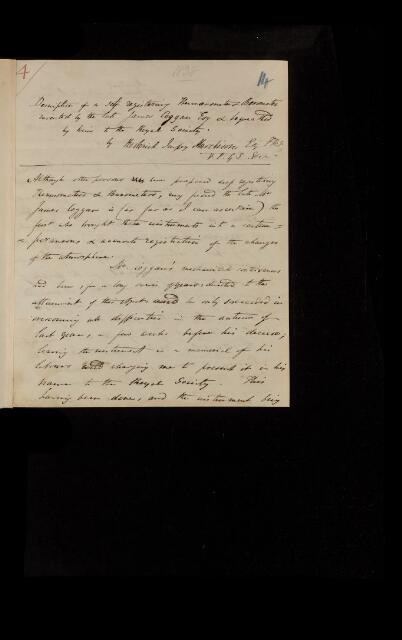 4
1838
14
Description of a self registering Thermometer & Barometer
invented by the late James Coggan Esq & bequeathed
by him to the Royal Society.
by Roderick Impey Murchison Esq FRS
V.P.G.S. &c &c
Although other persons have proposed self registering
Thermometers & Barometers, my friend the late Mr
James Coggan is (as far as I can ascertain) the
first who brought these instruments into a certain
& permanent & accurate registration of the changes
of the atmosphere.
Mr Coggan's mechanical contrivances
had been, for a long series of years, directed to the
attainment of this object & he only succeeded in
overcoming all difficulties in the autumn of
last year, a few weeks before his decease;
leaving the instrument as a memorial of his
labours & charging me to present it in his
name to the Royal Society. This
having been done, and the instrument being